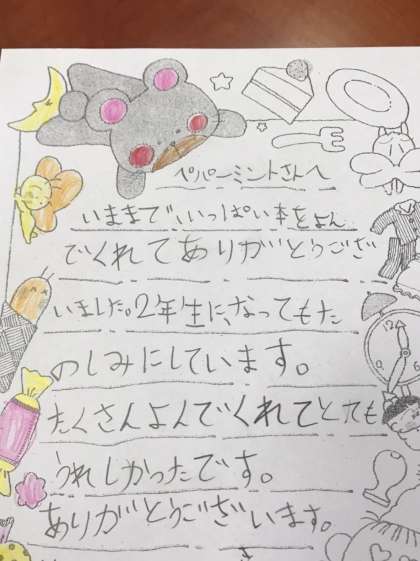 ペパーミントさんへ
いままでいっぱい本をよん
でくれてありがとうござ
いました。2年生になってもた
のしみにしています。
たくさんよんでくれてとても
うれしかったです。
ありがとうございます。